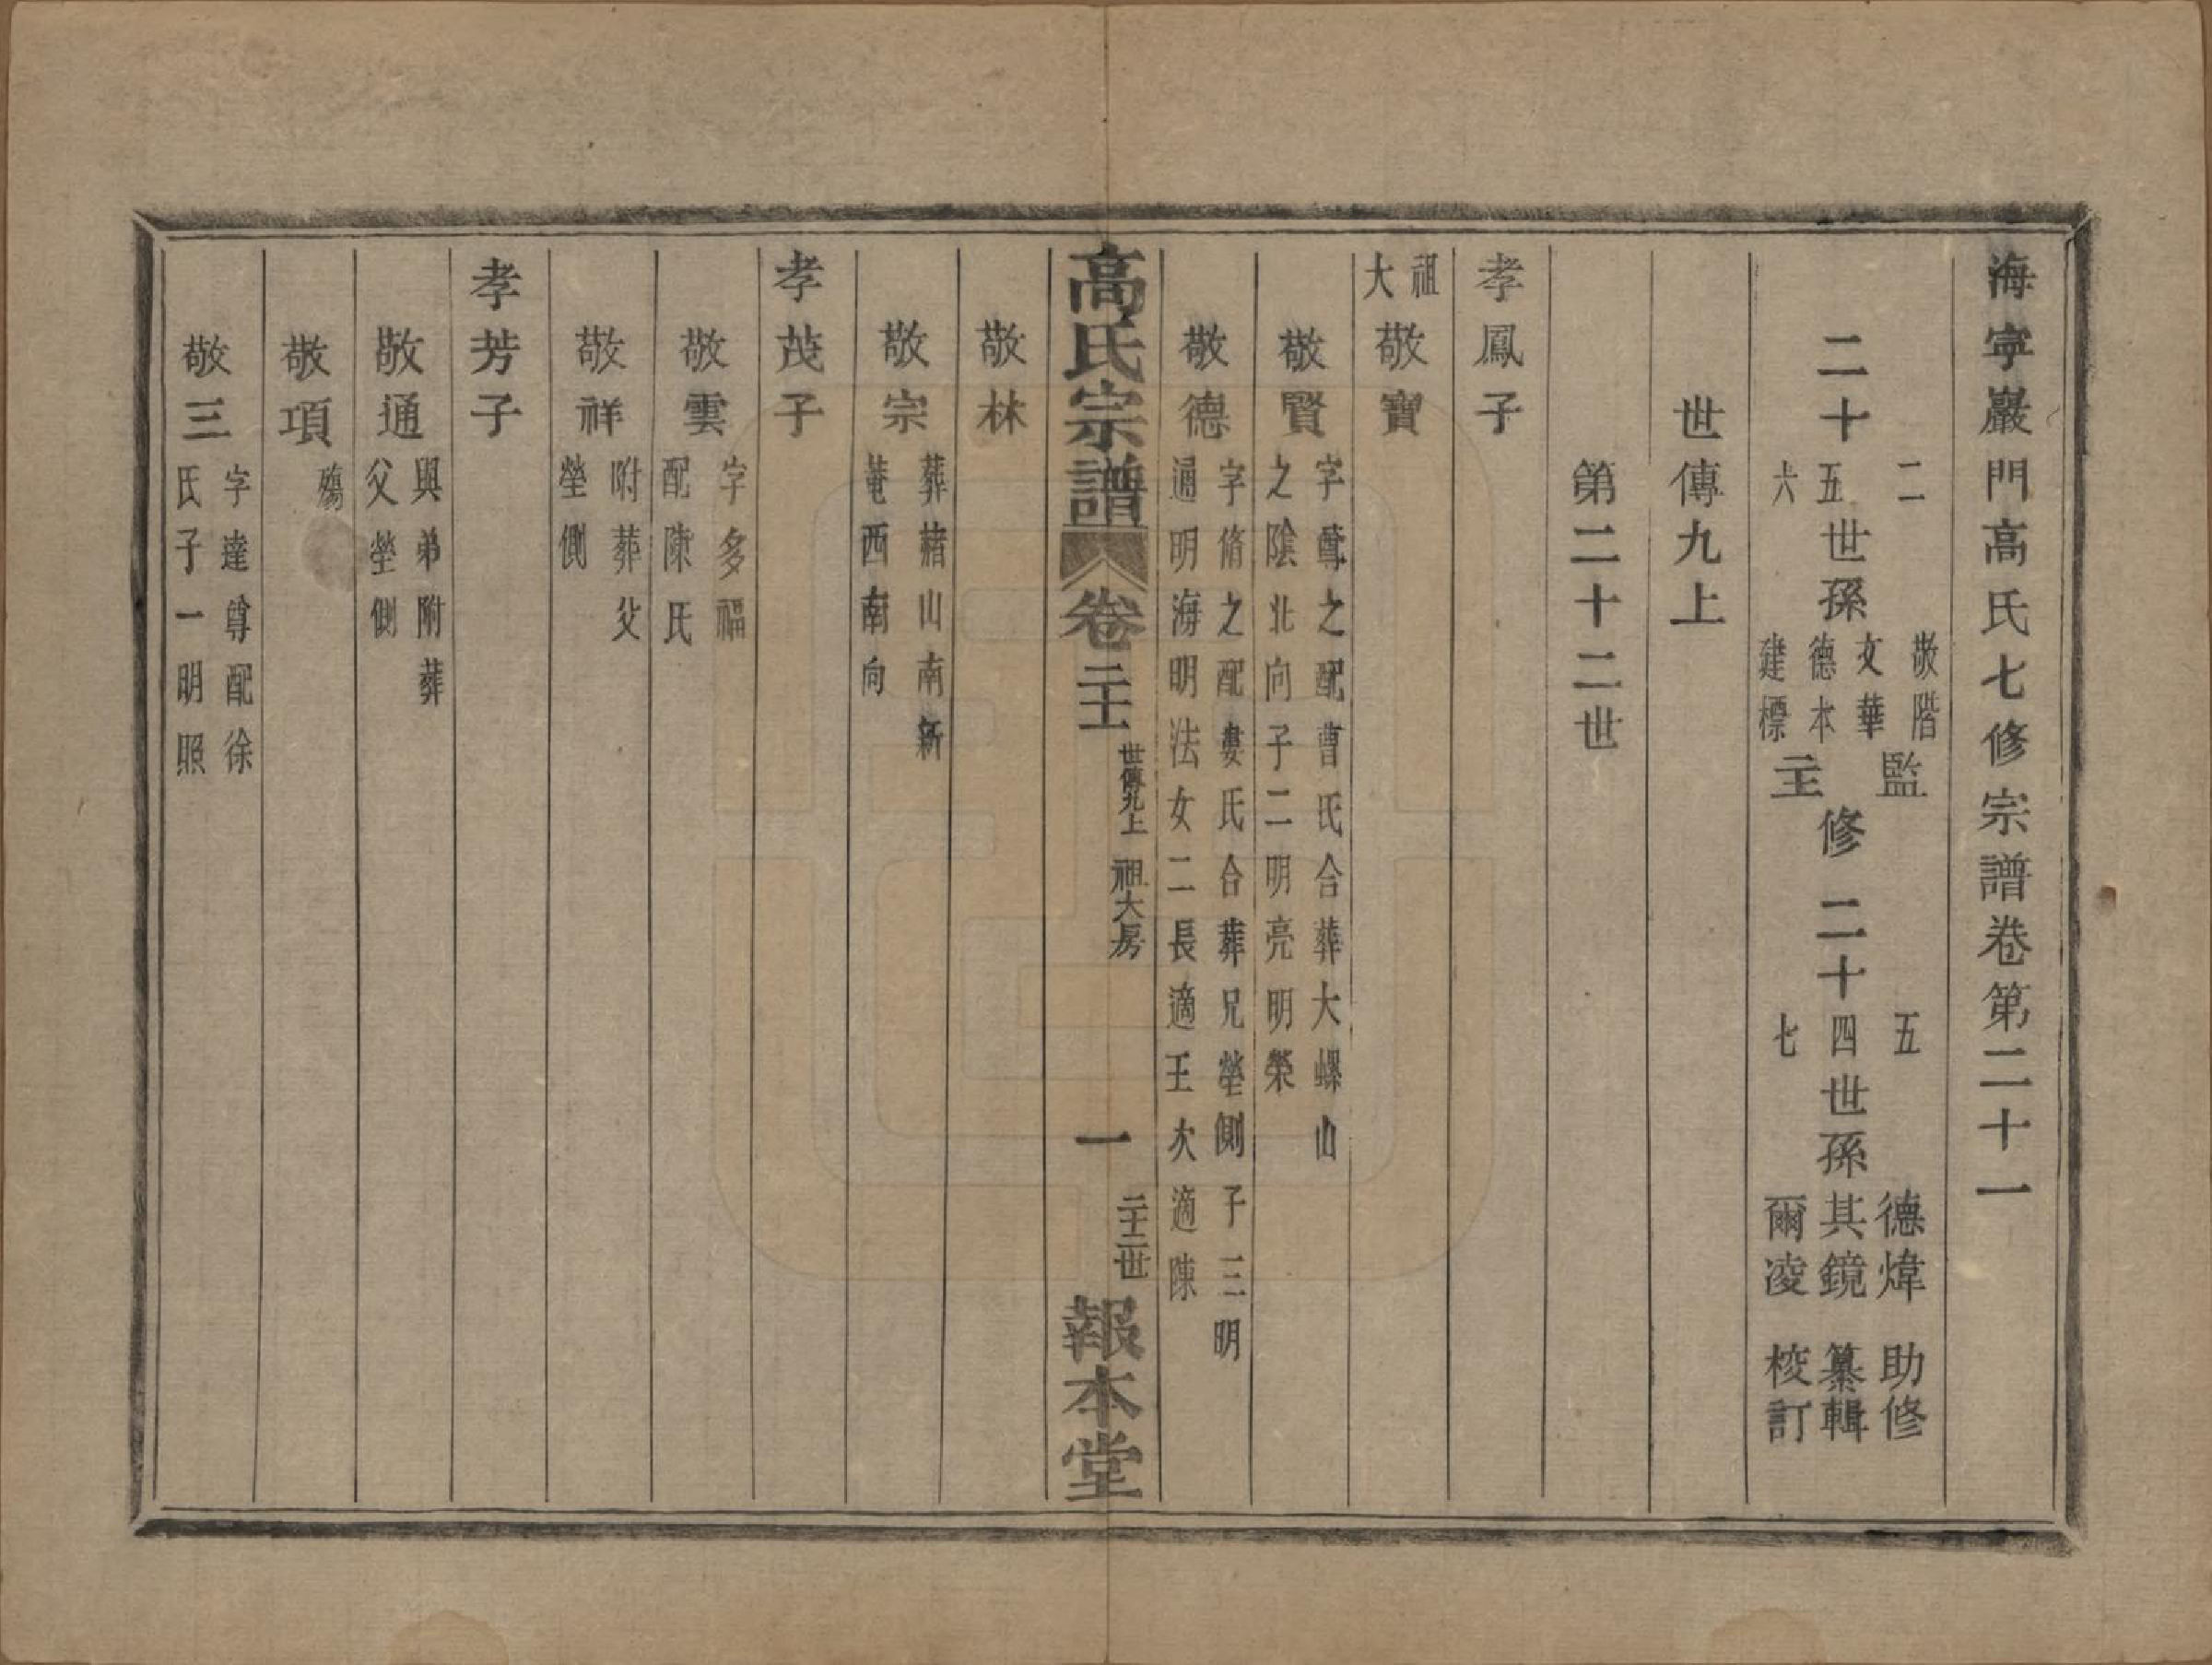 海寧巖門高氏七修宗譜卷第二十一
二十二世孫敬階監修
二十五世孫文華德本監主修
二十六世孫建標主修
二十五世孫德煒助修
二十四世孫其鏡纂輯
二十七世孫爾凌校訂
世傳九上
第二十二世
孝鳳子
祖大敬寶
敬賢
字奪之配曹氏合葬大螺山
之陰北向子二明亮明榮
敬德
字脩之配婁氏合葬兄塋側子三明
通明海明法女二長適王次適陳
高氏宗譜
卷二十一
世傳九上
祖大房
一
二十二世
報本堂
敬林
敬宗
葬赭山南新
菴西南向
孝茂子
敬雲
字多福
配陳氏
敬祥
附葬父
塋側
孝芳子
敬通
與弟附葬
父塋側
敬項
殤
敬三
字達尊配徐
氏子一明照